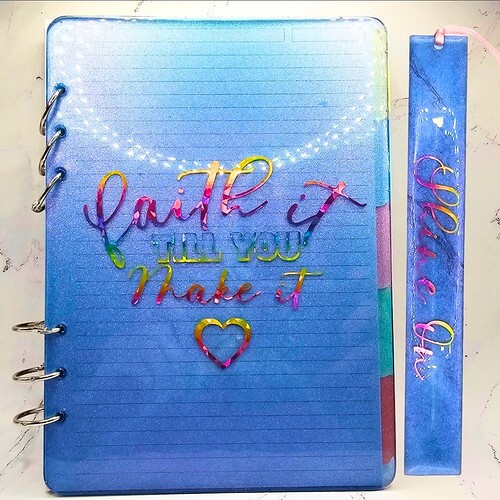 faith it
TILL YOU
Make it
Shine On